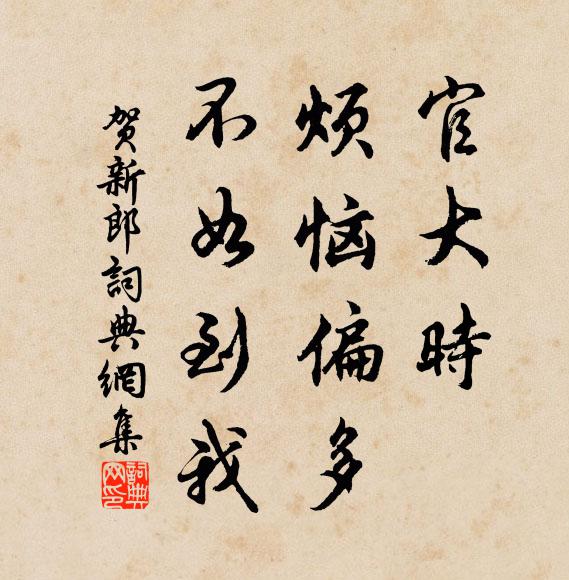 官大時
煩恼偏多
不如到我
贺新郎詞典網集
詞典网印